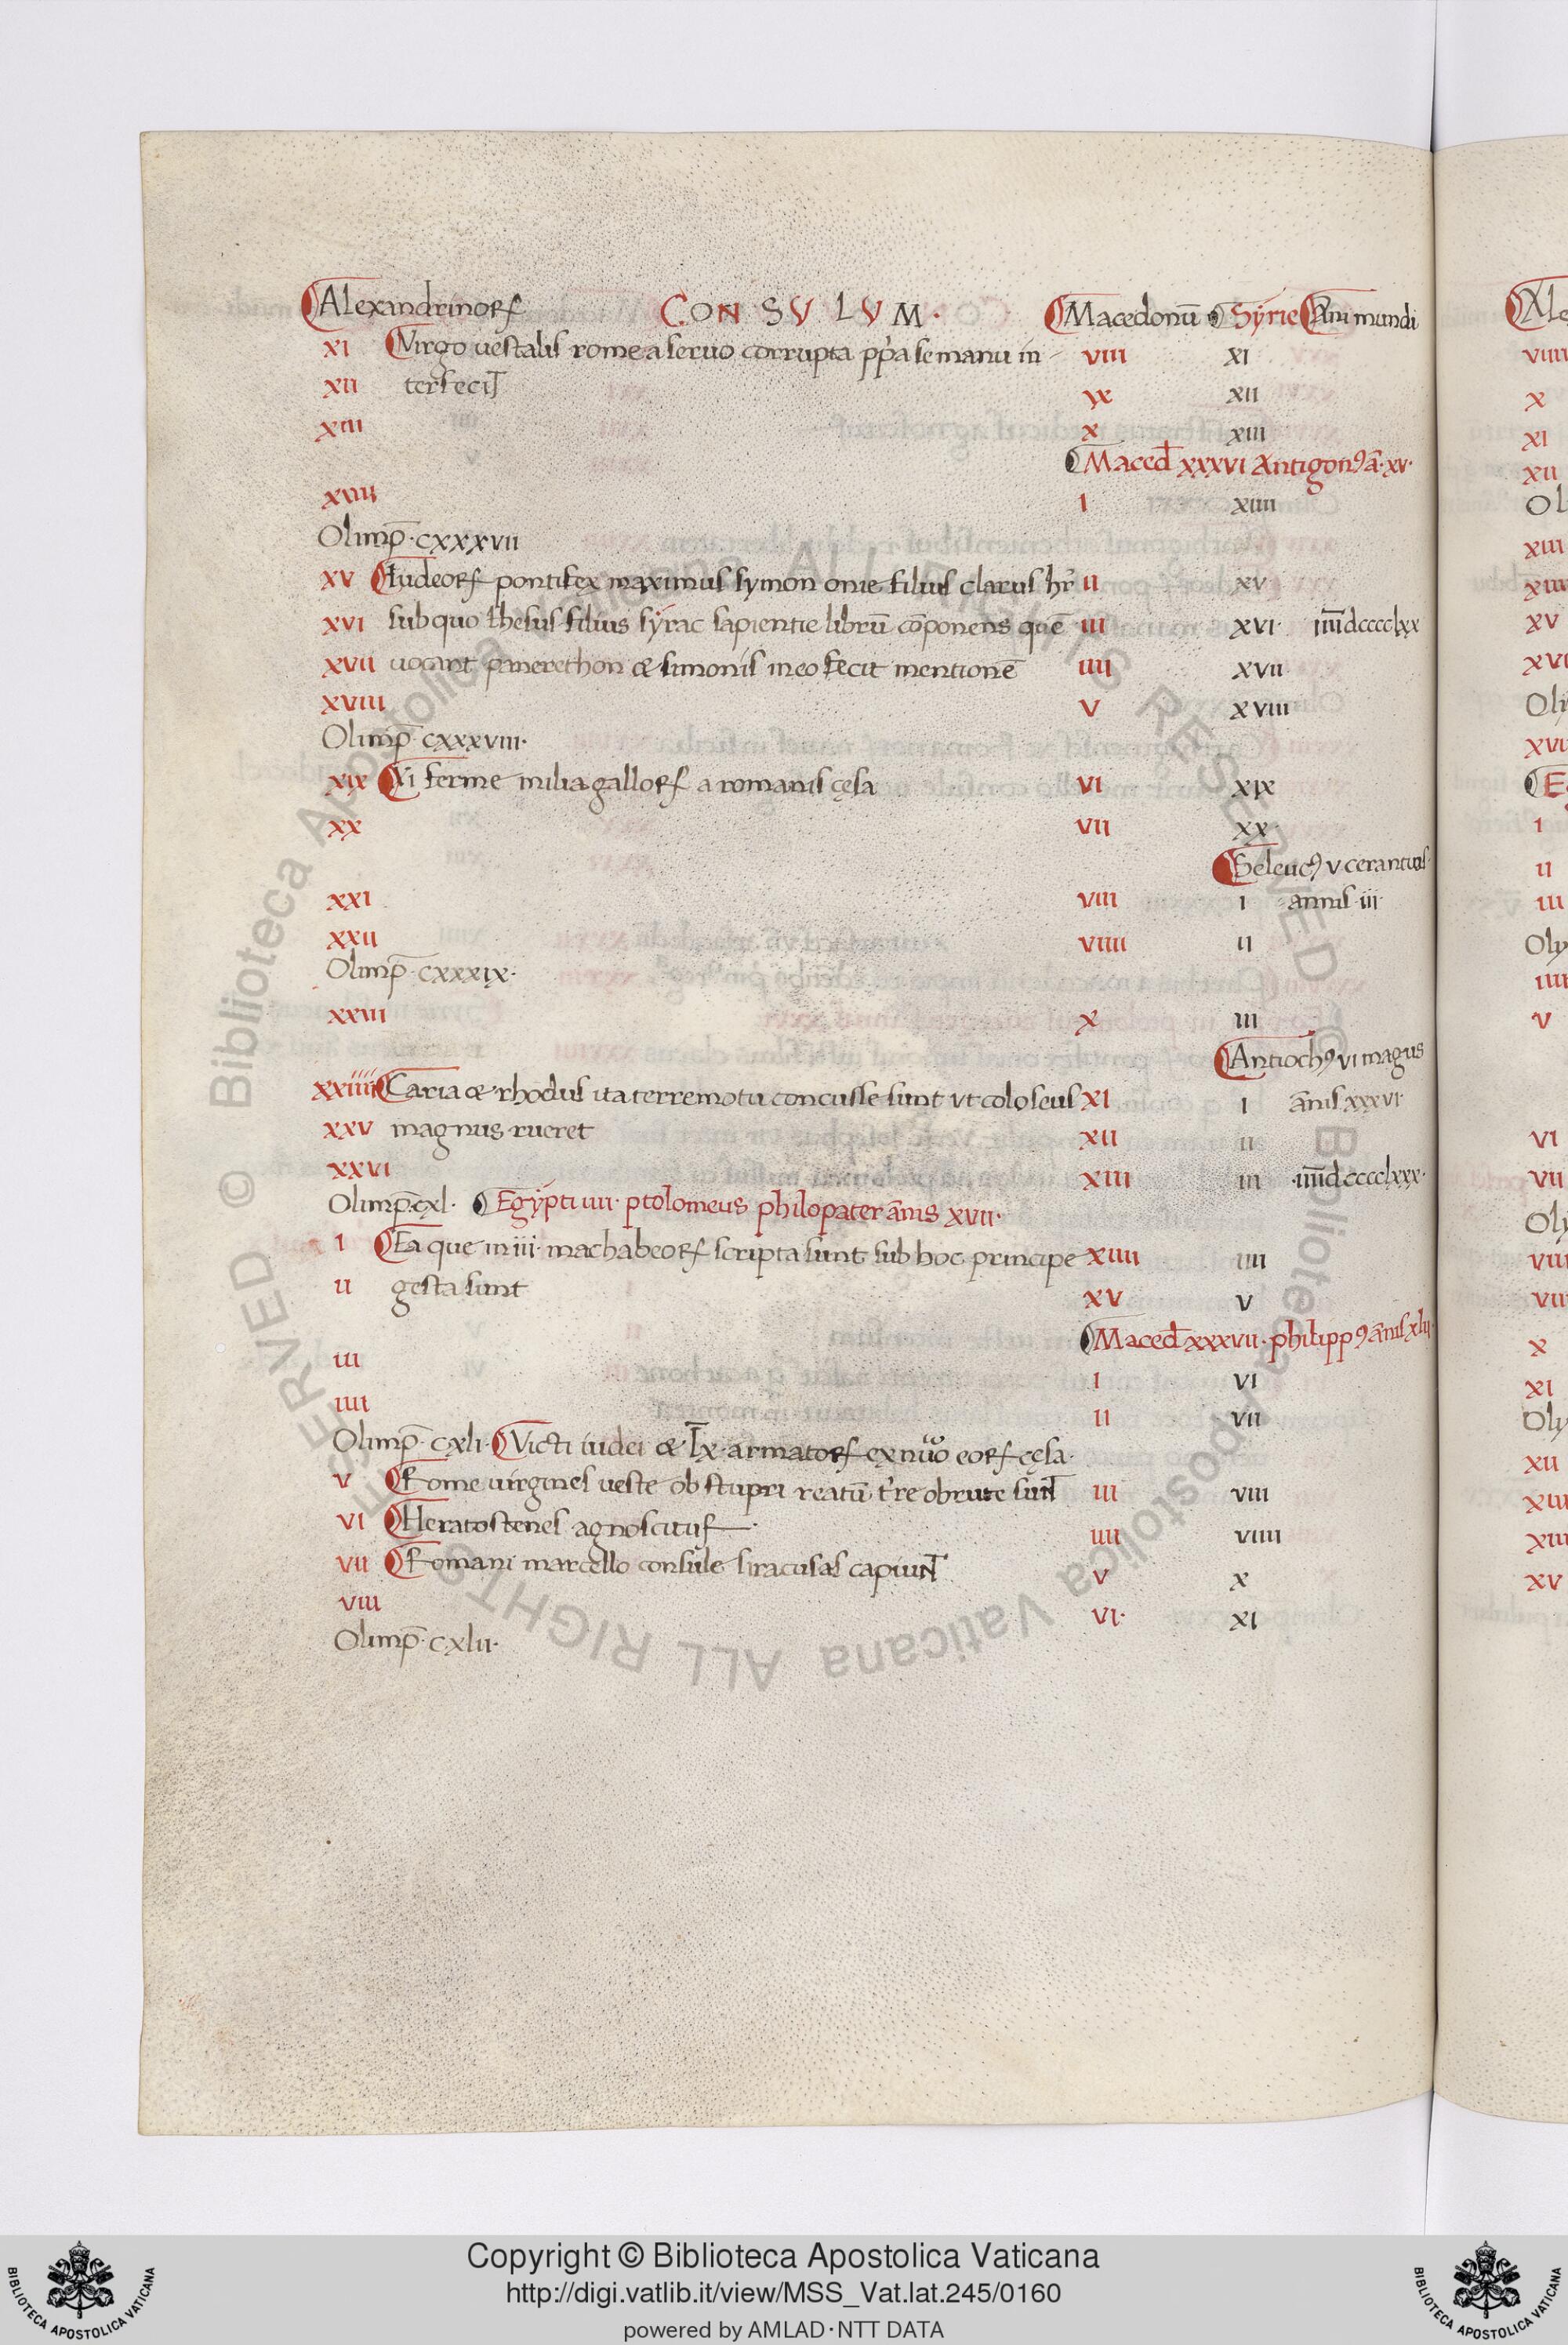 Alexandrinorꝝ CONSVLVM· Macedonū Syrie Ani mundi
XI Virgo uestalis rome a seruo corrupta pp̃a se manu in VIII XI
XII terfecit IX XII
XIII X XIII
Maced̄ XXXVI Antigonꝰ ā· XV·
XIIII I XIIII
Olimp̄· CXXXVII
XV Iudeorꝝ pontifex maximus symon onie filius clarus hr̃ II XV
XVI sub quo Ihesus filius syrac sapientie librū cōponens quē III XVI· īīīīdcccclxx
XVII uocant panerethon & simonis in eo fecit mentionē IIII XVII
XVIII V XVIII
Olimp̄ CXXXVIII·
XIX XI ferme milia gallorꝝ a romanis cęsa VI XIX
XX VII XX
Seleucꝰ V cerantius
XXI VIII I annis iii
XXII VIIII II
Olimp̄· CXXXIX·
XXIII X III
Antiochꝰ VI magus
XXIIII Caria & rhodus ita terremotu concusse sunt vt coloseus XI I ānis XXXVI·
XXV magnus rueret XII II
XXVI XIII III ·īīīīdcccclxxx·
Olimp̄·cxl· Egypti IIII· ptolomeus philopater ānis XVII·
I Ea que in iii· machabeorꝝ scripta sunt sub hoc principe XIIII IIII
II gesta sunt XV V
Maced̄ XXXVII· philippꝰ ānis xlii·
III I VI
IIII II VII
Olimp̄· cxli· Victi iudei & ·lx· armatorꝝ ex nůo eorꝝ cęsa·
V Rome uirgines ueste ob stupri reatū t̓re obrute sunt III VIII
VI Heratostenes agnoscitur IIII VIIII
VII Romani marcello consule siracusas capiunt V X
VIII VI· XI
Olimp̄·cxlii·
Ale
VIIII
X
XI
XII
Ol
XIII
XIIII
XV
XVI
Oli
XVII
E
I
II
III
Oly
IIII
V
VI
VII
Oly
VIII
X
XI
Oly
XII
XIII
XV
© Biblioteca Apostolica Vaticana ALL RIGHTS RESERVED
Copyright © Biblioteca Apostolica Vaticana
http://digi.vatlib.it/view/MSS_Vat.lat.245/0160
powered by AMLAD·NTT DATA
BIBLIOTECA APOSTOLICA VATICANA
BIBLIOTECA APOSTOLICA VATICANA